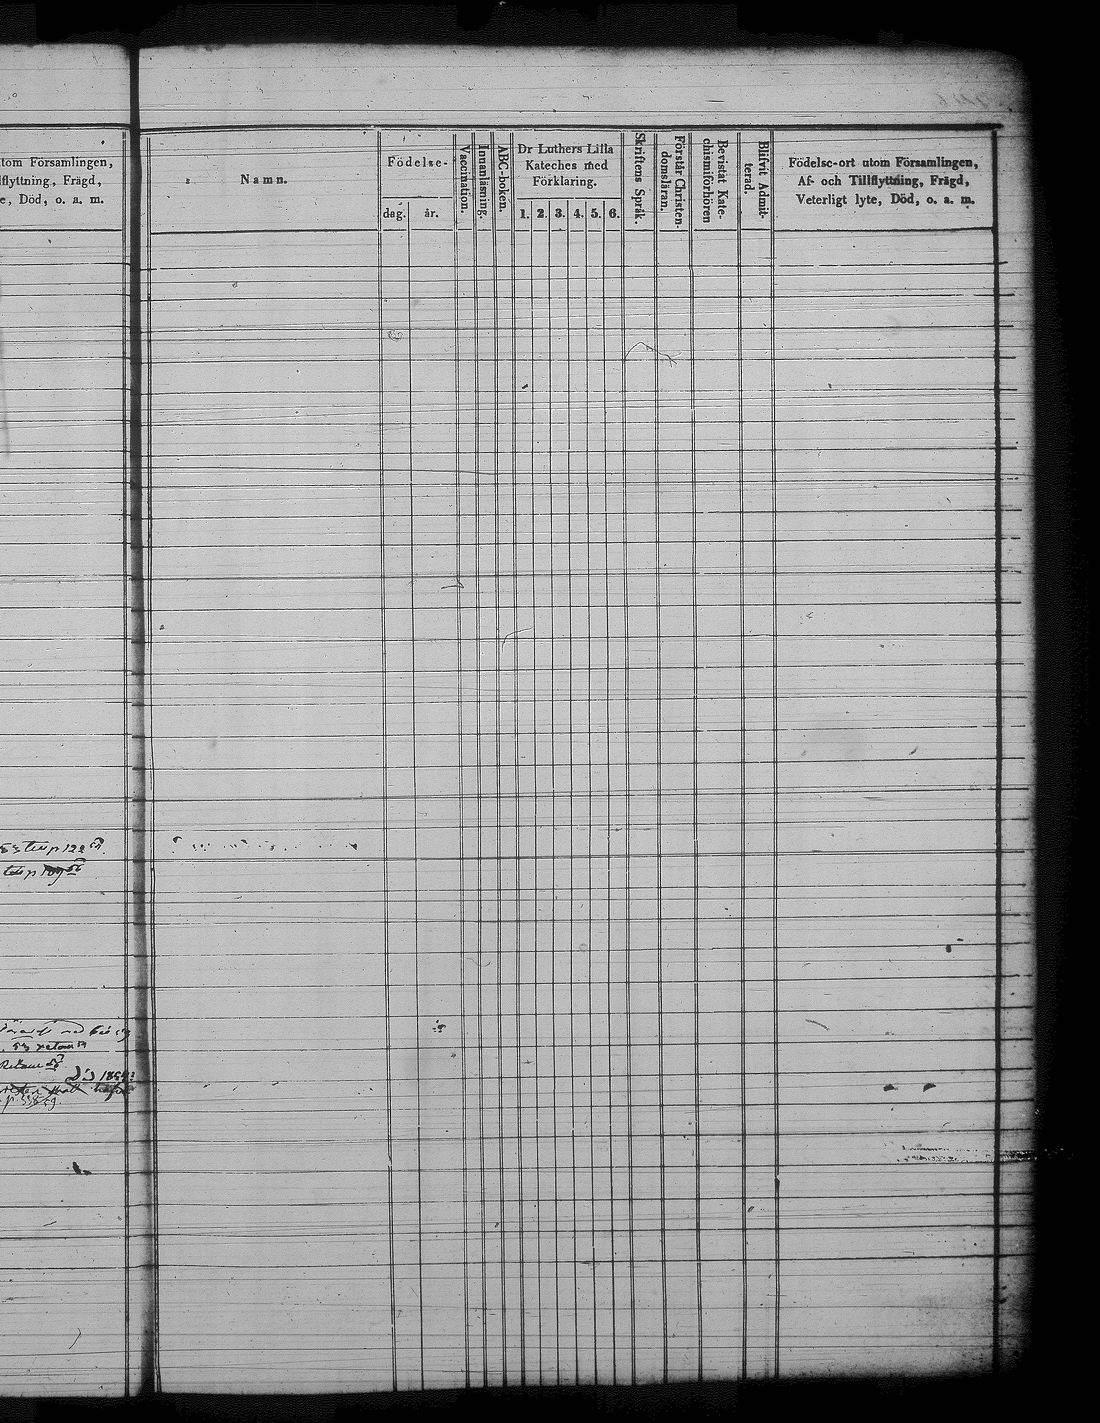 tom Församlingen,
lflyttning, Frägd,
e, Död, o. a. m.
53 till p 122
till p
53 retour
Retour
p 538
Namn.
Födelse-
dag. år.
Vaccination.
Innanläsning.
ABC-boken.
Dr Luthers Lilla
Kateches med
Förklaring.
1. 2. 3. 4. 5. 6.
Skriftens Språk.
Förstår Christen-
domsläran.
Bevistat Kate-
chismiförhören
Blifvit Admit-
terad.
Födelse-ort utom Församlingen,
Af- och Tillflyttning, Frägd,
Veterligt lyte, Död, o. a. m.